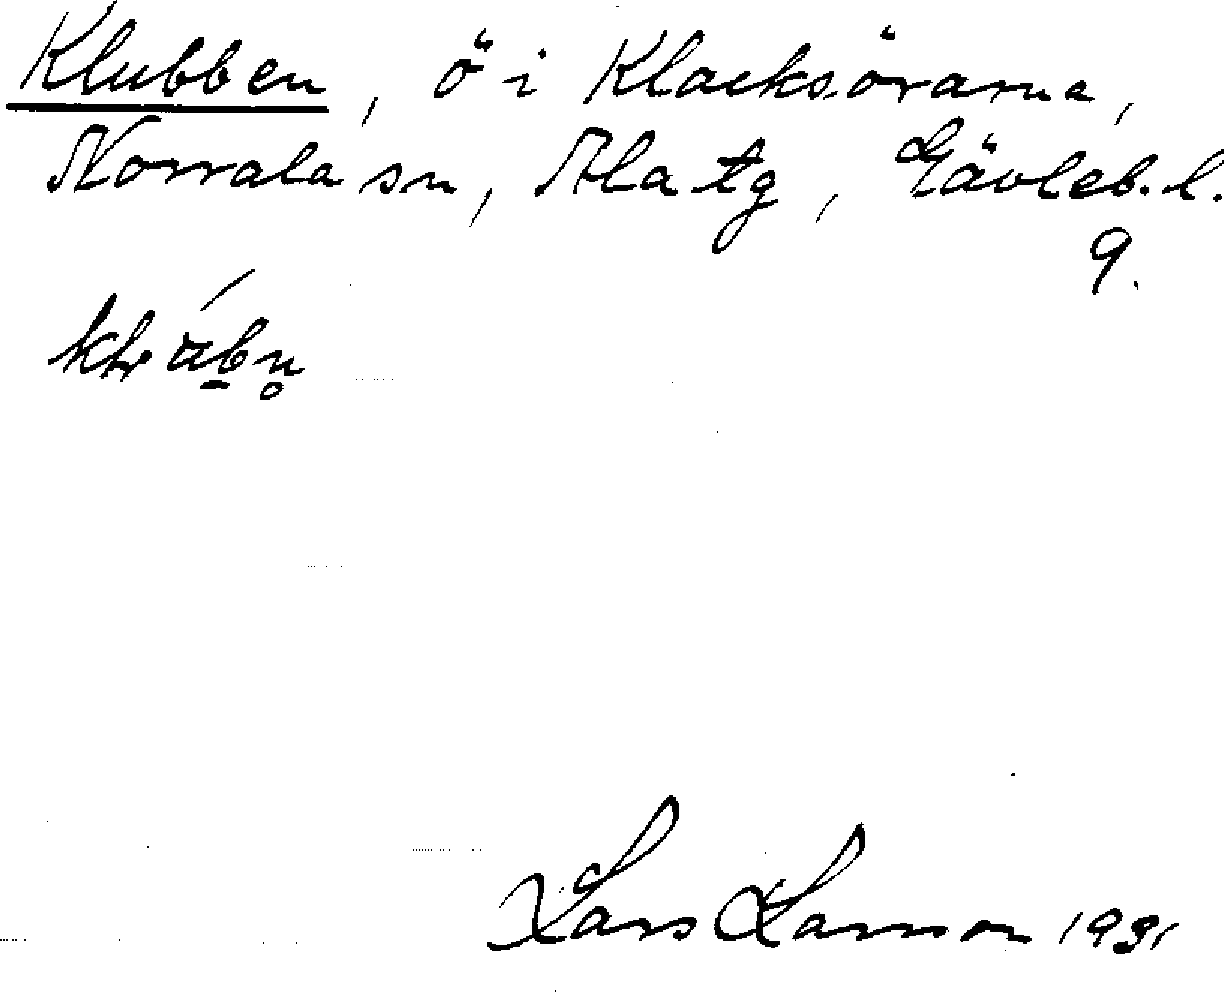 Klubben, ö i Klacksörarna,
Norrala sn, Ala tg, Gävleb. l.
9.
Lars Larsson 1931